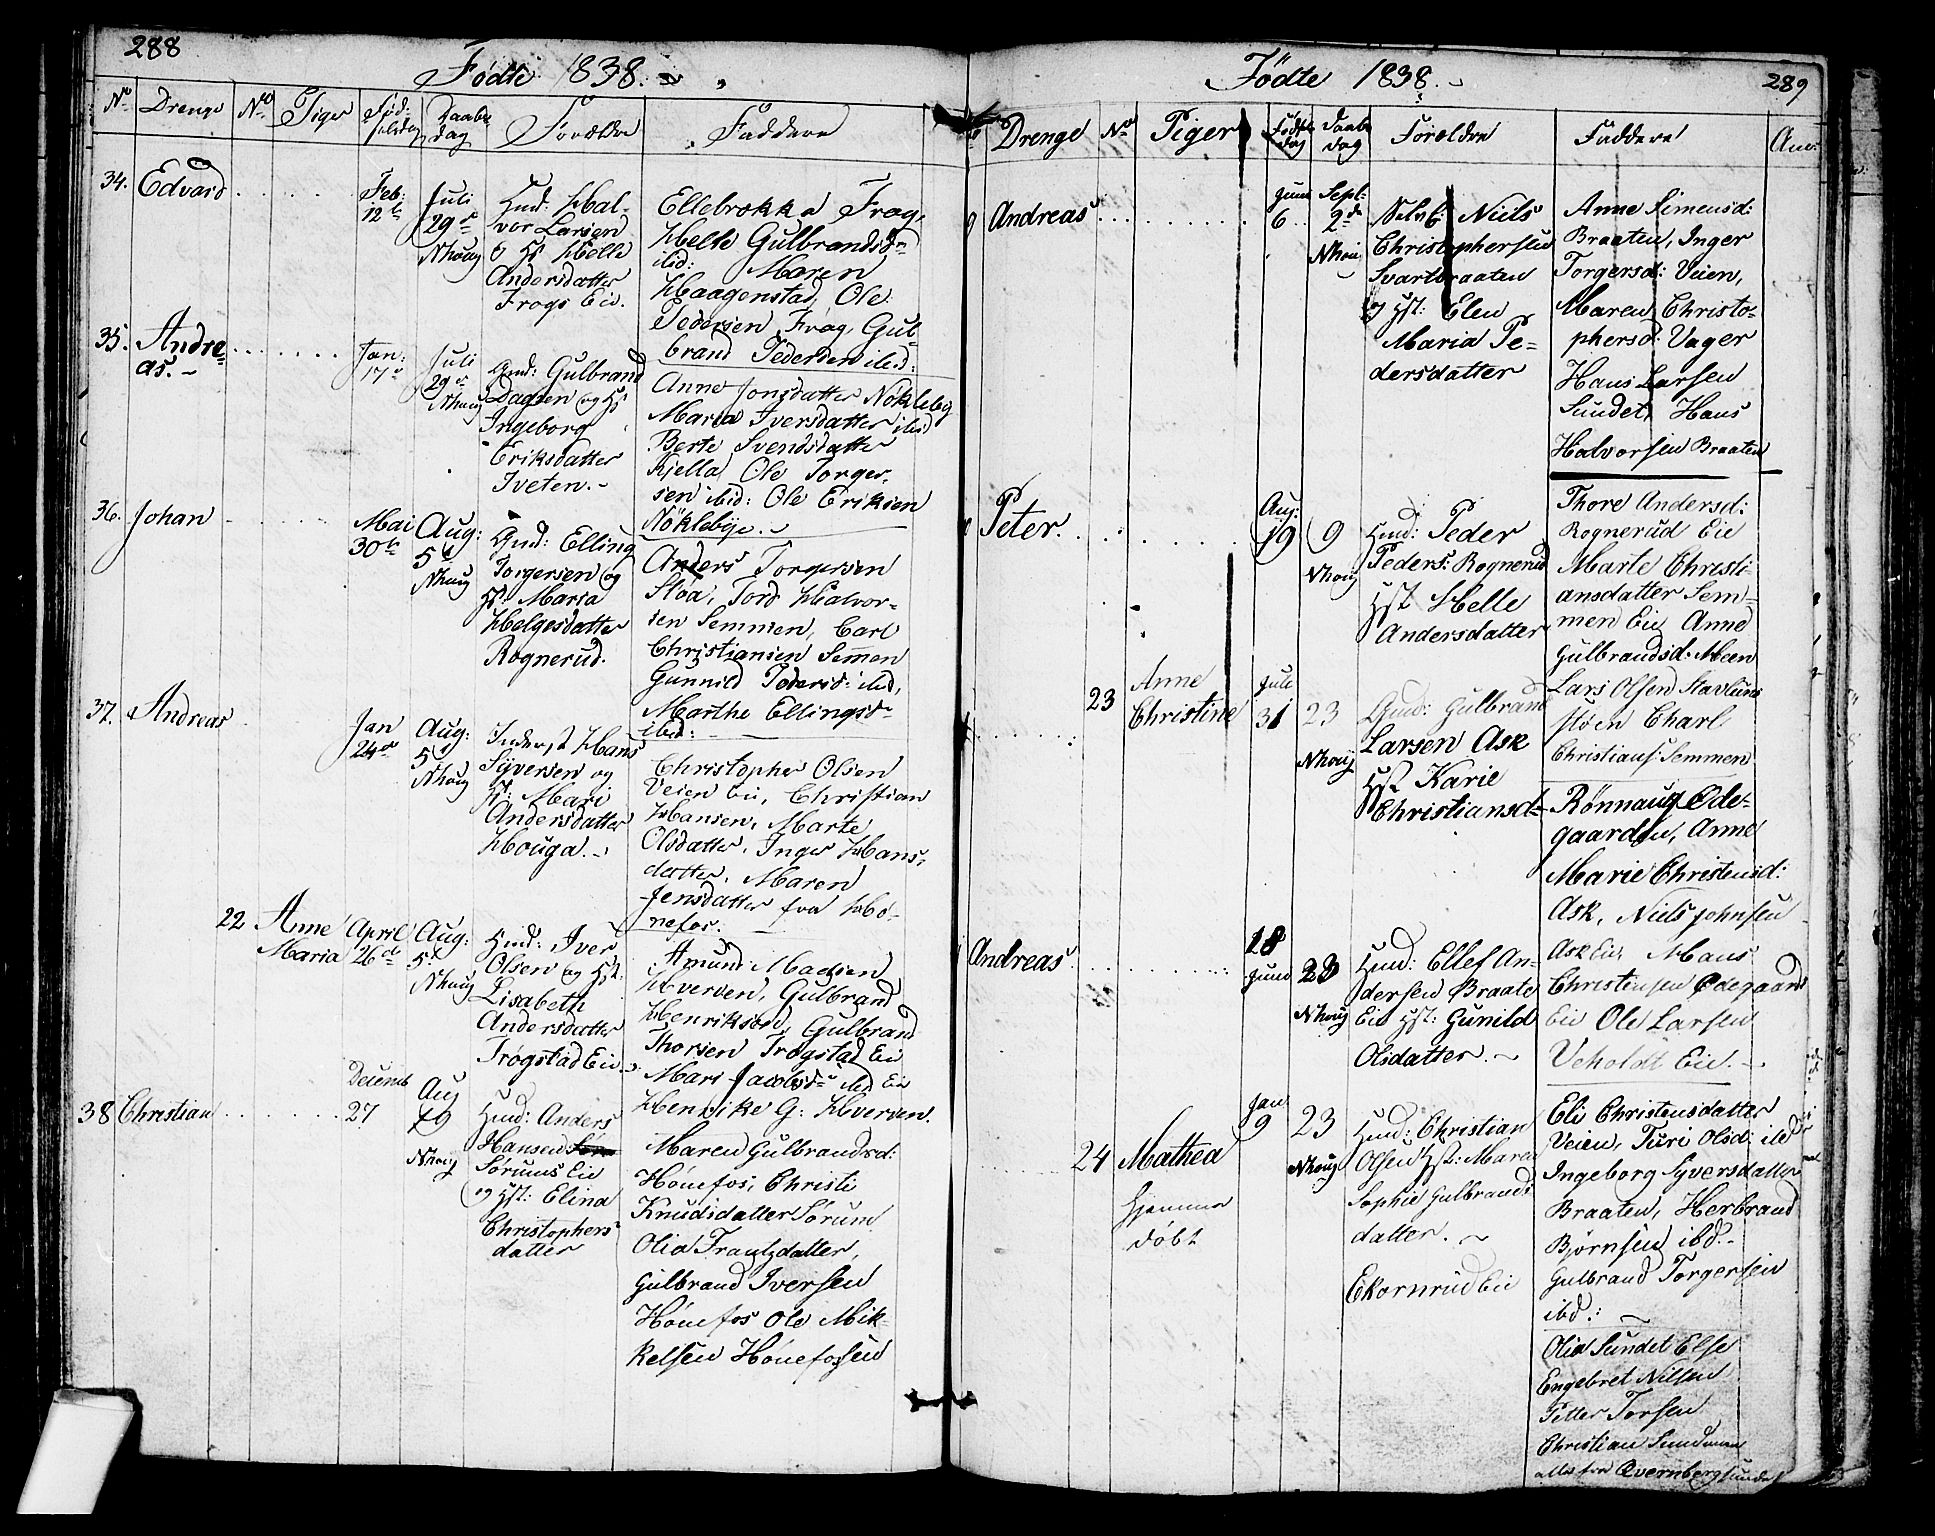 288
Födte 1838.
No Drenge No Piger Föd-selsdag Daabs dag Forældre Faddere
34. Edvard
Feb: 12te
Juli 29de
Nhoug
Hmd: Hal-
vor Larsen
og Hst Helle
Andersdatter
Frogs Eie.
Ellebrökka Frog,
Helle Gulbrandsdr
ibid: Maren
Haagenstad, Ole
Pedersen Frog, Gul-
brand Pedersen ibid:
35. Andre-
as. -
Jan: 17de
Juli 29de
Nhoug
Gmd: Gulbrand
Dagsen og Hst
Ingeborg
Eriksdatter
Tveten. -
Anne Jonsdatter Nökleby
Maria Iversdatter ibid
Berte Svendsdatter
Kjella, Ole Torger-
sen ibid: Ole Eriksen
Nöklebye. -
36. Johan
Mai 30te
Aug: 5te
Nhoug
Gmd: Elling
Torgersen og
Hst: Maria
Helgesdatter
Rognerud.
Anders Torgersen
Sloa, Tord Halvor-
sen Semmen, Carl
Christiansen Semen
Gunnild Pedersd: ibid,
Marthe Ellingsdr
ibid:
37. Andreas
Jan 24de
Aug: 5te
Nhoug
Inderst Hans
Syversen og
Hst: Mari
Andersdatter
Houga. -
Christopher Olsen
Veien Eie, Christian
Hansen, Marte
Olsdatter, Inger Hans-
datter, Maren
Jensdatter fra Hö-
nefos.
22 Anne
Maria
April 26de
Aug: 5te
Nhoug
Hmd: Iver
Olsen og Hst:
Lisabeth
Andersdatter
Trögstad Eie.
Amund Madsen
Hverven, Gulbrand
Henriksen, Gulbrand
Thorsen Trögstad Eie
Mari Jacobsdr ibid Eie
Henrike G: Hverven.
38 Christian
Decemb 27
Aug 19
Nhoug
Hmd: Anders
Hansen
Sörums Eie
og Hst: Elina
Christophers
datter
Maren Gulbrandsd:
Hönefos, Christi
Knudsdatter Sörum
Olia Frantzdatter,
Gulbrand Iversen
Hönefos Ole Mik-
kelsen Hönefossen
Födte 1838. -
289
Drenge No Piger Födsels dag Daabs dag Foreldre Faddere Anm:
Andreas
Juni 6
Sept: 2de
Nhoug
Selvb: Niels
Christophersen
Svartbraaten
og Hst: Elen
Maria Pe-
dersdatter
Anne Simensd:
Braaten, Inger
Torgersd: Veien,
Maren Christo-
phersd: Vager
Hans Larsen
Sundet, Hans
Halvorsen Braaten
Peter.
Aug: 19
9
Nhoug
Hmd: Peder
Peders: Rognerud
Hst Helle
Andersdatter
Thore Andersd:
Rognerud Eie
Marte Christi-
ansdatter Sem-
men Eie Anne
Gulbrandsd: Meen
Lars Olsen
Charl
Christians: Semmen
23 Anne
Christine
Juli 31
23
Nhoug
Gmd: Gulbrand
Larsen Ask
Hst Karie
Christiansd.
Rönnaug Öde-
gaarden, Anne
Marie Christensd:
Ask, Niels Johnsen
Ask Eie, Hans
Christensen Ödegaard
Eie Ole Larsen
Veholdt Eie. -
Andreas
18 Juni
23
Nhoug
Hmd: Ellef An-
dersen Braate
Eie Hst: Gunild
Olsdatter. -
24 Mathea
hjemme
döbt
Jan: 9
23
Nhoug
Hmd: Christian
Olsen Hst: Maren
Sophie Gulbrands
datter. -
Ekornrud Eie
Eli Christensdatter
Veien, Turi Olsd: ibid
Ingeborg Syversdatter
Braaten, Herbrand
Björnsen ibd. -
Gulbrand Torgersen
ibd: -
Olia Sundet Else
Engebret Nilsen
Petter Torsen
Christian
alle fra Qvernbergsundet